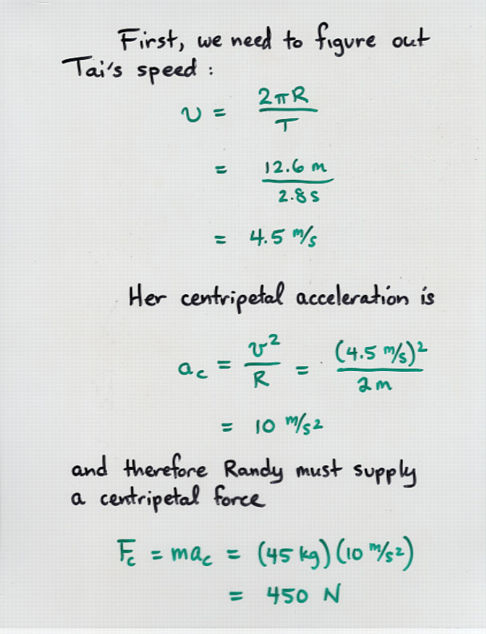 First, we need to figure out
Tai's speed :
v = 2πR / T
= 12.6 m / 2.8 s
= 4.5 m/s
Her centripetal acceleration is
a_c = v² / R = (4.5 m/s)² / 2 m
= 10 m/s²
and therefore Randy must supply
a centripetal force
F_c = ma_c = (45 kg)(10 m/s²)
= 450 N